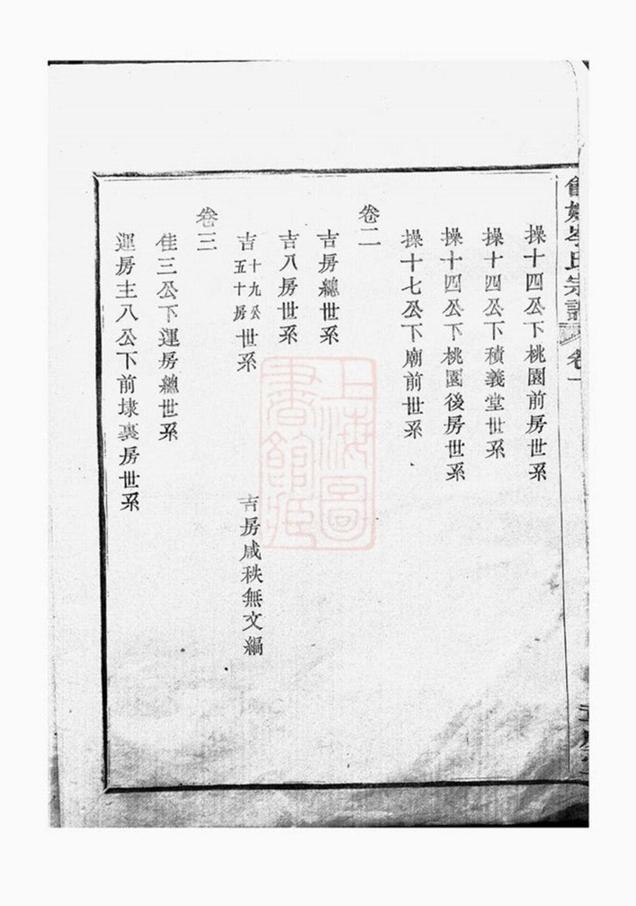 氏宗譜 卷一
操十四公下桃園前房世系
操十四公下積義堂世系
操十四公下桃園後房世系
操十七公下廟前世系
卷二
吉房總世系
吉八房世系
吉十九公五十房世系 吉房咸秩無文編
卷三
佳三公下運房總世系
運房主八公下前埭裏房世系
上海圖書館藏